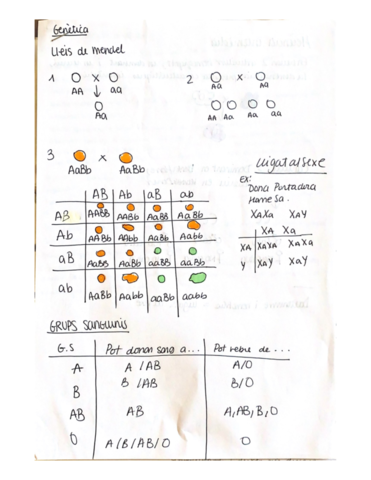 Genètica
Lleis de mendel
1 O X O
AA aa
Aa
2 O X O
Aa Aa
AA Aa Aa aa
3 X
AaBb AaBb
AB Ab aB ab
AB AABB AaBb AaBB AaBb
Ab AABb AaBb AaBb AaBb
aB AaBB AaBb aaBB aaBb
ab AaBb Aabb aaBb aabb
lligat al sexe
ex:
Dona Portadora
Home Sa.
XAXa XAY
XA Xa
XA XAXA XAXa
Y XAY XaY
GRUPS SANGUINIS
G.S Pot donar sang a... Pot rebre de...
A A / AB A/O
B B / AB B/O
AB AB A, AB, B, O
O A/B/AB/O O